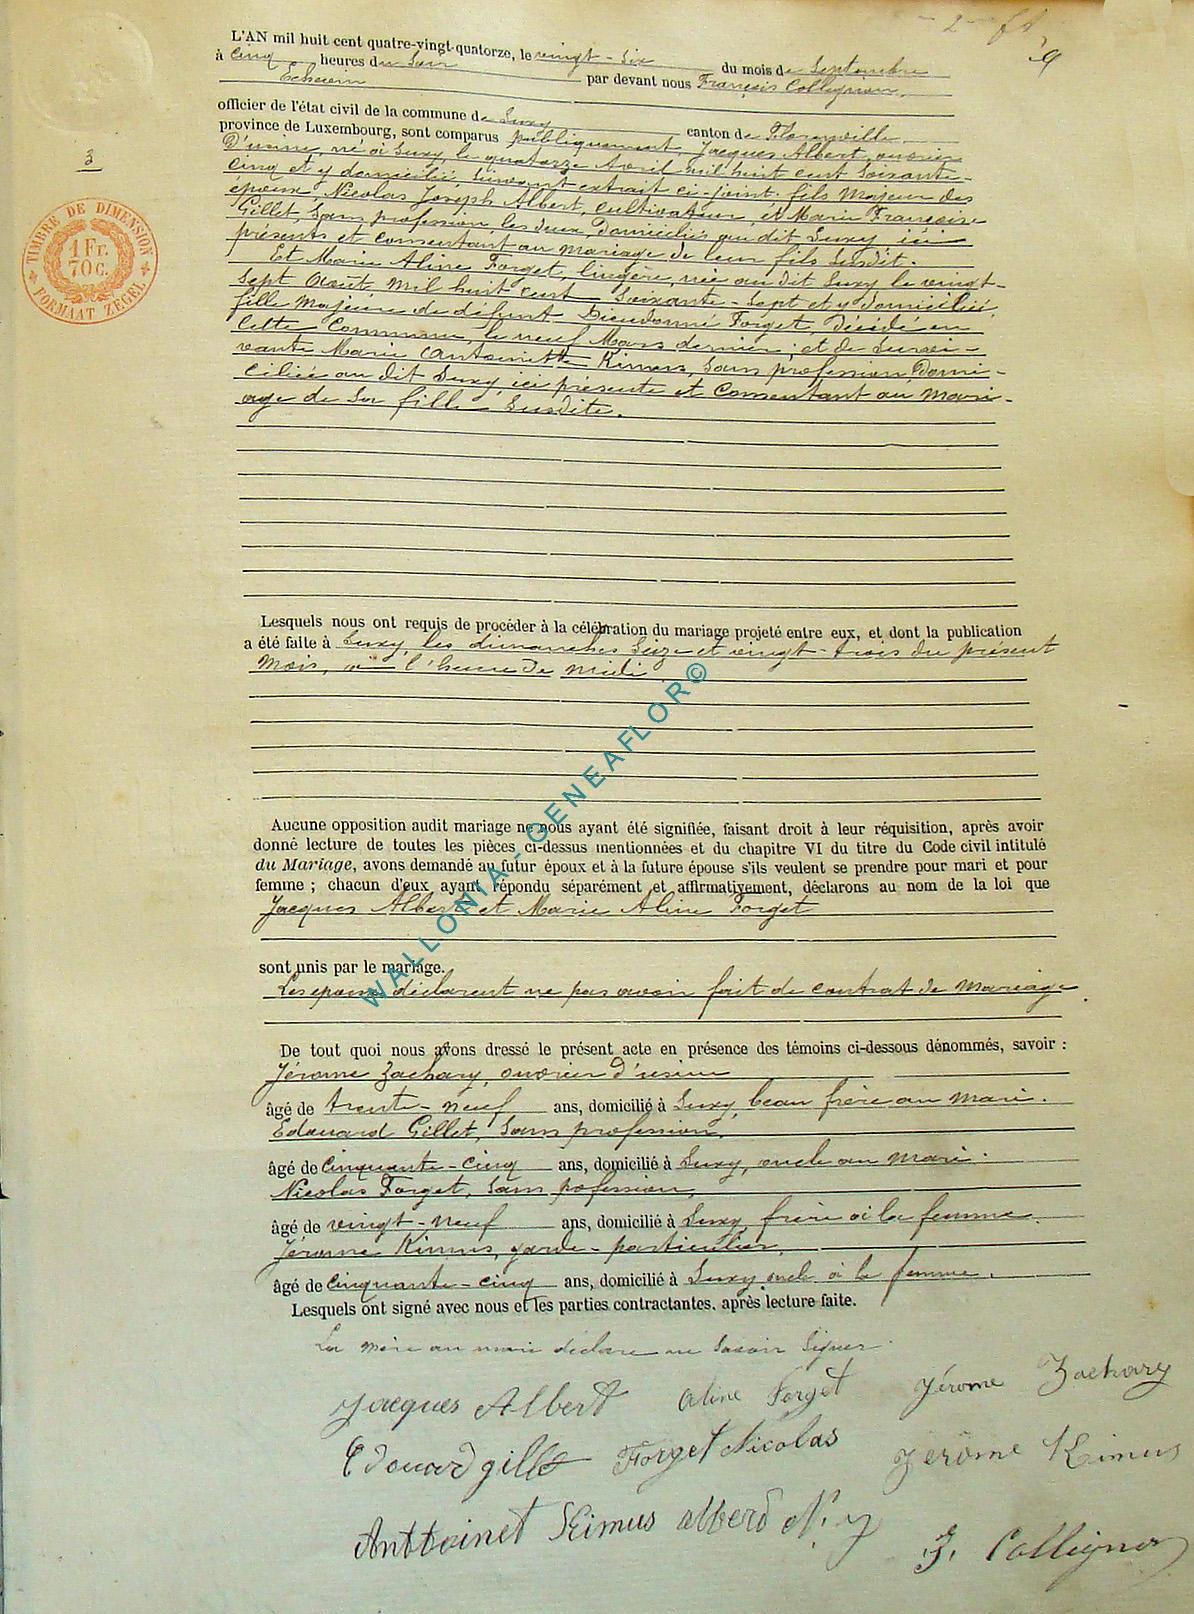 3
TIMBRE DE DIMENSION
1 Fr.
70 c.
FORMAAT ZEGEL
L'AN mil huit cent quatre-vingt-quatorze, le vingt-six du mois de Septembre
à cinq heures du Soir par devant nous François Collignon,
Echevin
officier de l'état civil de la commune de Suxy canton de Florenville
province de Luxembourg, sont comparus publiquement, Jacques Albert, ouvrier
D'usine, né à Suxy, le quatorze Avril mil huit cent Soixante-
cinq et y domicilié suivant extrait ci-joint; fils Majeur des
époux, Nicolas Joséph Albert, cultivateur, et Marie Françoise
Gillet, Sans profession, les deux Domiciliés qu'dit Suxy, ici
présents et consentant au mariage de leur fils Susdit.
Et Marie Aline Forget, lingère, née au dit Suxy, le vingt-
Sept Août Mil huit cent Soixante-Sept et y domiciliée,
fille Majeure de défunt Dieudonné Forget, Décédé en
Cette Commune, le neuf Mars dernier; et de Survi-
vante Marie Antoinette Kimus, Sans profession Domi-
ciliée au dit Suxy, ici présente et Consentant au Mari-
age de Sa fille Susdite.
Lesquels nous ont requis de procéder à la célébration du mariage projeté entre eux, et dont la publication
a été faite à Suxy, les dimanches Seize et vingt-trois du présent
Mois, à l'heure De midi
Aucune opposition audit mariage ne nous ayant été signifiée, faisant droit à leur réquisition, après avoir
donné lecture de toutes les pièces ci-dessus mentionnées et du chapitre VI du titre du Code civil intitulé
du Mariage, avons demandé au futur époux et à la future épouse s'ils veulent se prendre pour mari et pour
femme ; chacun d'eux ayant répondu séparément et affirmativement, déclarons au nom de la loi que
Jacques Albert et Marie Aline Forget
sont unis par le mariage.
Les époux déclarent ne pas avoir fait de contrat de Mariage
De tout quoi nous avons dressé le présent acte en présence des témoins ci-dessous dénommés, savoir :
Jérome Zachary, ouvrier D'usine
âgé de trente-neuf ans, domicilié à Suxy, beau frère au mari.
Edouard Gillet, Sans profession,
âgé de Cinquante-cinq ans, domicilié à Suxy, oncle au mari.
Nicolas Forget, Sans pofession,
âgé de vingt-neuf ans, domicilié à Suxy, frère à la femme.
Jérome Kimus, garde-particulier,
âgé de cinquante-cinq ans, domicilié à Suxy oncle à la femme.
Lesquels ont signé avec nous et les parties contractantes, après lecture faite.
La mère au mari déclare ne Savoir Signer
Jacques Albert Aline Forget Jérome Zachary
Edouard gillet Forget Nicolas Jérôme Kimus
Anttoinet Kimus albert N. J
F. Collignon
WALLONIA-GENEAFLOR©